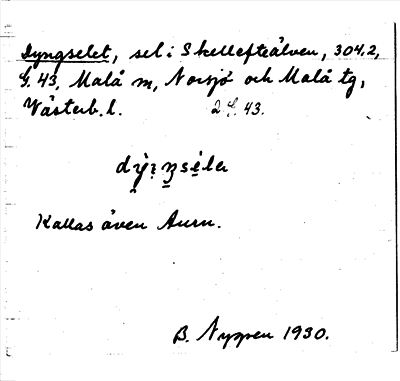 Dyngselet, sel i Skellefteälven, 304.2,
G. 43, Malå m, Norsjö och Malå tg,
Västerb. l. 2 G. 43.
Kallas även Aurn.
B. Nyppen 1930.